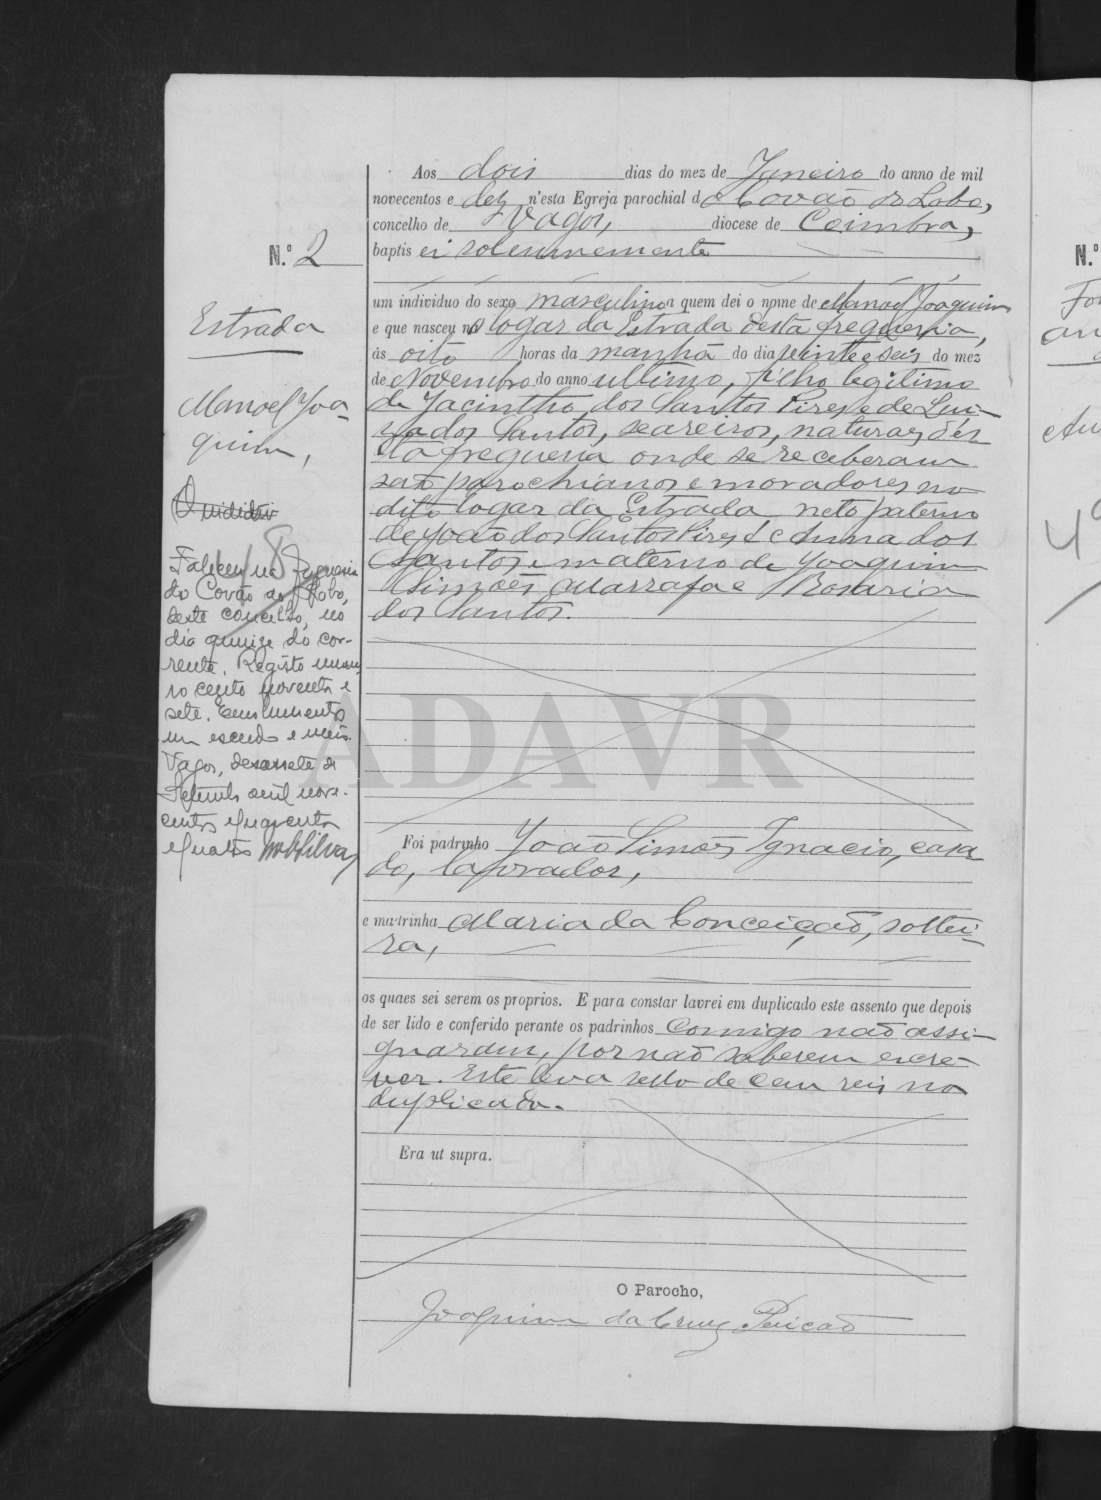 N.º 2
Estrada
Manoel Joa-
quim,
Falleceu na freguesia
do Covão do Lobo,
deste concelho, no
dia quinze do cor-
rente. Registo nume-
ro cento noventa e
sete. Emolumentos
um escudo e meio.
Vagos, desassete de
Setembro mil nove-
centos e quarenta
e quatro
Aos dois dias do mez de Janeiro do anno de mil
novecentos e dez n'esta Egreja parochial de Covão do Lobo,
concelho de Vagos, diocese de Coimbra,
baptisei solemnemente
um individuo do sexo masculino a quem dei o nome de Manoel Joaquim
e que nasceu no logar da Estrada desta freguesia,
ás oito horas da manhã do dia vinte e seis do mez
de Novembro do anno ultimo, filho legitimo
de Jacintho dos Santos Pires e de Lui-
za dos Santos, seareiros, naturaes des
ta freguesia onde se receberam
são parochianos e moradores no
dito logar da Estrada neto paterno
de João dos Santos Pires e Anna dos
Santos e materno de Joaquim
Simões Marrafa e Rosaria
dos Santos.
ADAVR
Foi padrinho João Simões Ignacio, casa
do, lavrador,
e madrinha Maria da Conceição, soltei-
ra,
os quaes sei serem os proprios. E para constar lavrei em duplicado este assento que depois
de ser lido e conferido perante os padrinhos comigo não assi-
gnaram, por não saberem escre-
ver. Este leva sello de cem reis no
duplicado.
Era ut supra.
O Parocho,
Joaquim da Cruz
N.º